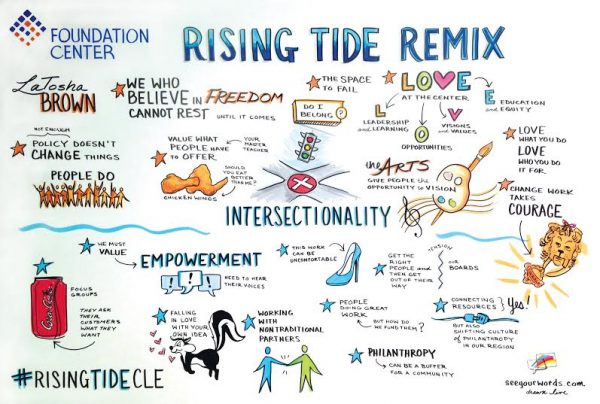 FOUNDATION
CENTER
RISING TIDE REMIX
LaTosha
BROWN
WE WHO
BELIEVE IN FREEDOM
CANNOT REST UNTIL IT COMES
THE SPACE
TO FAIL
DO I
BELONG?
LOVE
AT THE CENTER
L
LEADERSHIP
and LEARNING
O
OPPORTUNITIES
V
VISIONS
and VALUES
E
EDUCATION
and EQUITY
POLICY DOESN'T
CHANGE THINGS
PEOPLE DO
VALUE WHAT
PEOPLE HAVE
TO OFFER
YOUR
MASTER
TEACHER
SHOULD YOU
EAT BETTER
THAN ME?
CHICKEN WINGS
INTERSECTIONALITY
the ARTS
GIVE PEOPLE the
OPPORTUNITY to VISION
LOVE
WHAT YOU DO
LOVE
WHO YOU DO
IT FOR
CHANGE WORK
TAKES
COURAGE
WE MUST
VALUE
EMPOWERMENT
NEED TO HEAR
THEIR VOICES
THIS WORK
CAN BE
UNCOMFORTABLE
GET THE
RIGHT
PEOPLE and THEN
GET OUT OF THEIR
WAY
TENSION
OUR
BOARDS
Coca-Cola
FOCUS
GROUPS
THEY ASK
THEIR
CUSTOMERS
WHAT THEY
WANT
FALLING
IN LOVE
WITH YOUR
OWN IDEA
WORKING
WITH
NONTRADITIONAL
PARTNERS
PEOPLE
DOING GREAT
WORK
BUT HOW DO
WE FUND THEM?
CONNECTING
RESOURCES } Yes!
BUT ALSO
SHIFTING CULTURE
of PHILANTHROPY
IN OUR REGION
PHILANTHROPY
CAN BE A
BUFFER
FOR A COMMUNITY
#RISINGTIDECLE
seeyourwords.com